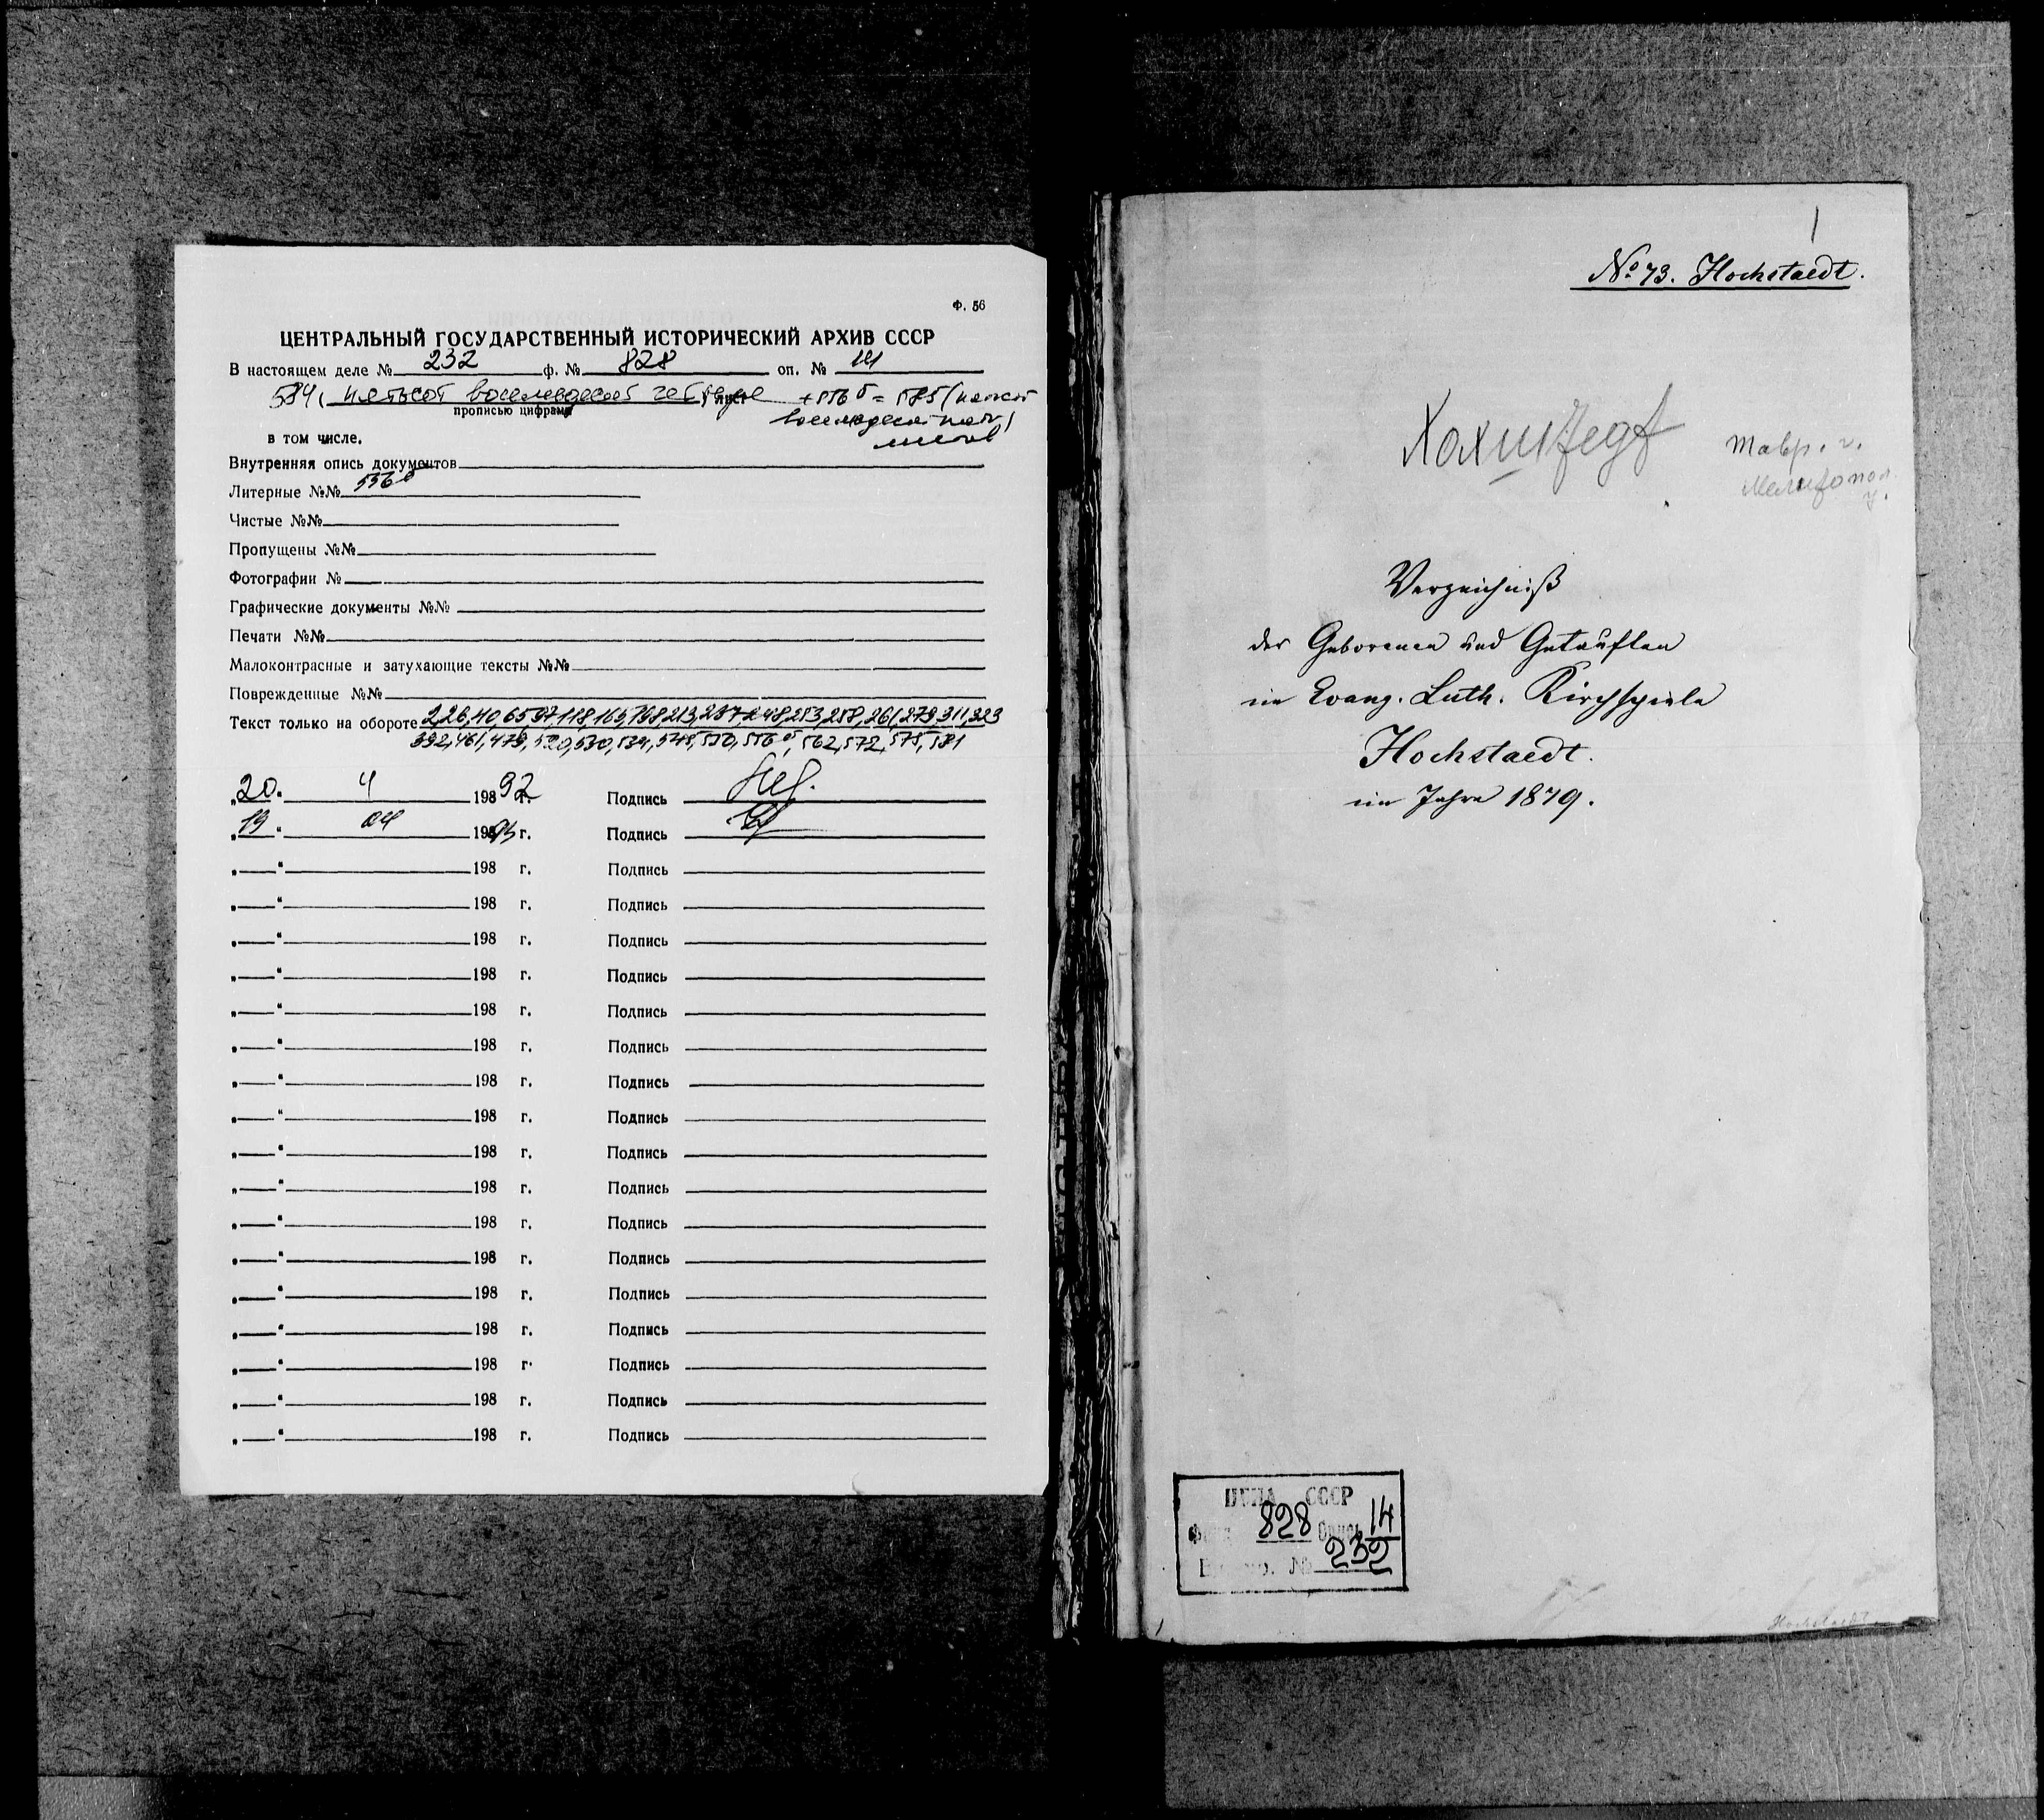 Ф. 56
ЦЕНТРАЛЬНЫЙ ГОСУДАРСТВЕННЫЙ ИСТОРИЧЕСКИЙ АРХИВ СССР
В настоящем деле № 232 ф. № 828 оп. № 14
584, пятьсот восемьдесят четыре лист + 556б = 585 (пятьсот
прописью цифрами восемьдесят пять)
листов
в том числе.
Внутренняя опись документов
Литерные №№ 556б
Чистые №№
Пропущены №№
Фотографии №
Графические документы №№
Печати №№
Малоконтрасные и затухающие тексты №№
Поврежденные №№
Текст только на обороте 2,26,40,65,97,118,165,768,213,237,248,253,258,261,279,311,323
392,461,479,520,530,539,548,550,556б,562,572,575,581
„20." 4 198 92 г. Подпись
„19" 04 198 г. Подпись
„—" 198 г. Подпись
„—" 198 г. Подпись
„—" 198 г. Подпись
„—" 198 г. Подпись
„—" 198 г. Подпись
„—" 198 г. Подпись
„—" 198 г. Подпись
„—" 198 г. Подпись
„—" 198 г. Подпись
„—" 198 г. Подпись
„—" 198 г. Подпись
„—" 198 г. Подпись
„—" 198 г. Подпись
„—" 198 г. Подпись
„—" 198 г. Подпись
„—" 198 г. Подпись
„—" 198 г. Подпись
1
№ 73. Hochstaedt.
Хохштедт
Тавр. г.
Мелитопол.
у.
Verzeichniß
der Geborenen und Getauften
im Evang. Luth. Kirchspiele
Hochstaedt.
im Jahre 1879.
ЦГИА СССР
Фонд 828 Опись 14
№ 232
Hochstaedt.